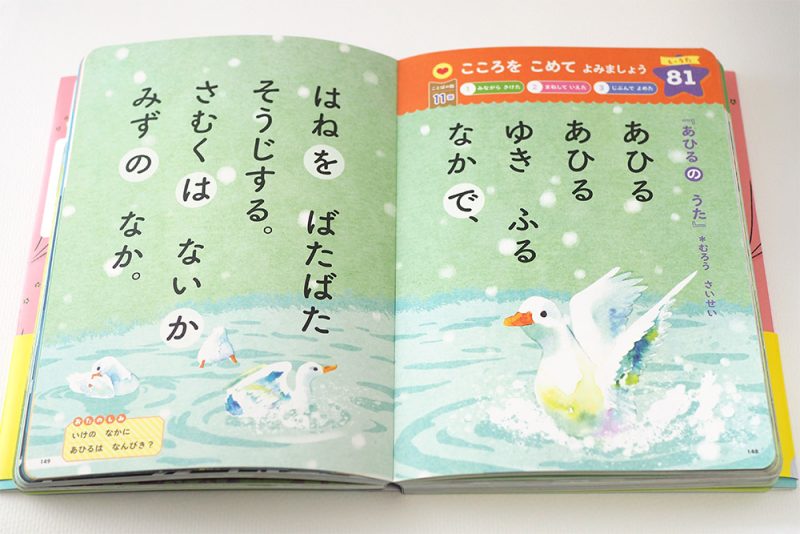 こころを こめて よみましょう
し・うた
81
ことばの数
11語
1 みながら きけた
2 まねして いえた
3 じぶんで よめた
『あひる の うた』
*むろう さいせい
あひる
あひる
ゆき ふる
なかで、
はねを ばたばた
そうじする。
さむくは ないか
みずの なか。
おたのしみ
いけの なかに
あひるは なんびき?
149
148